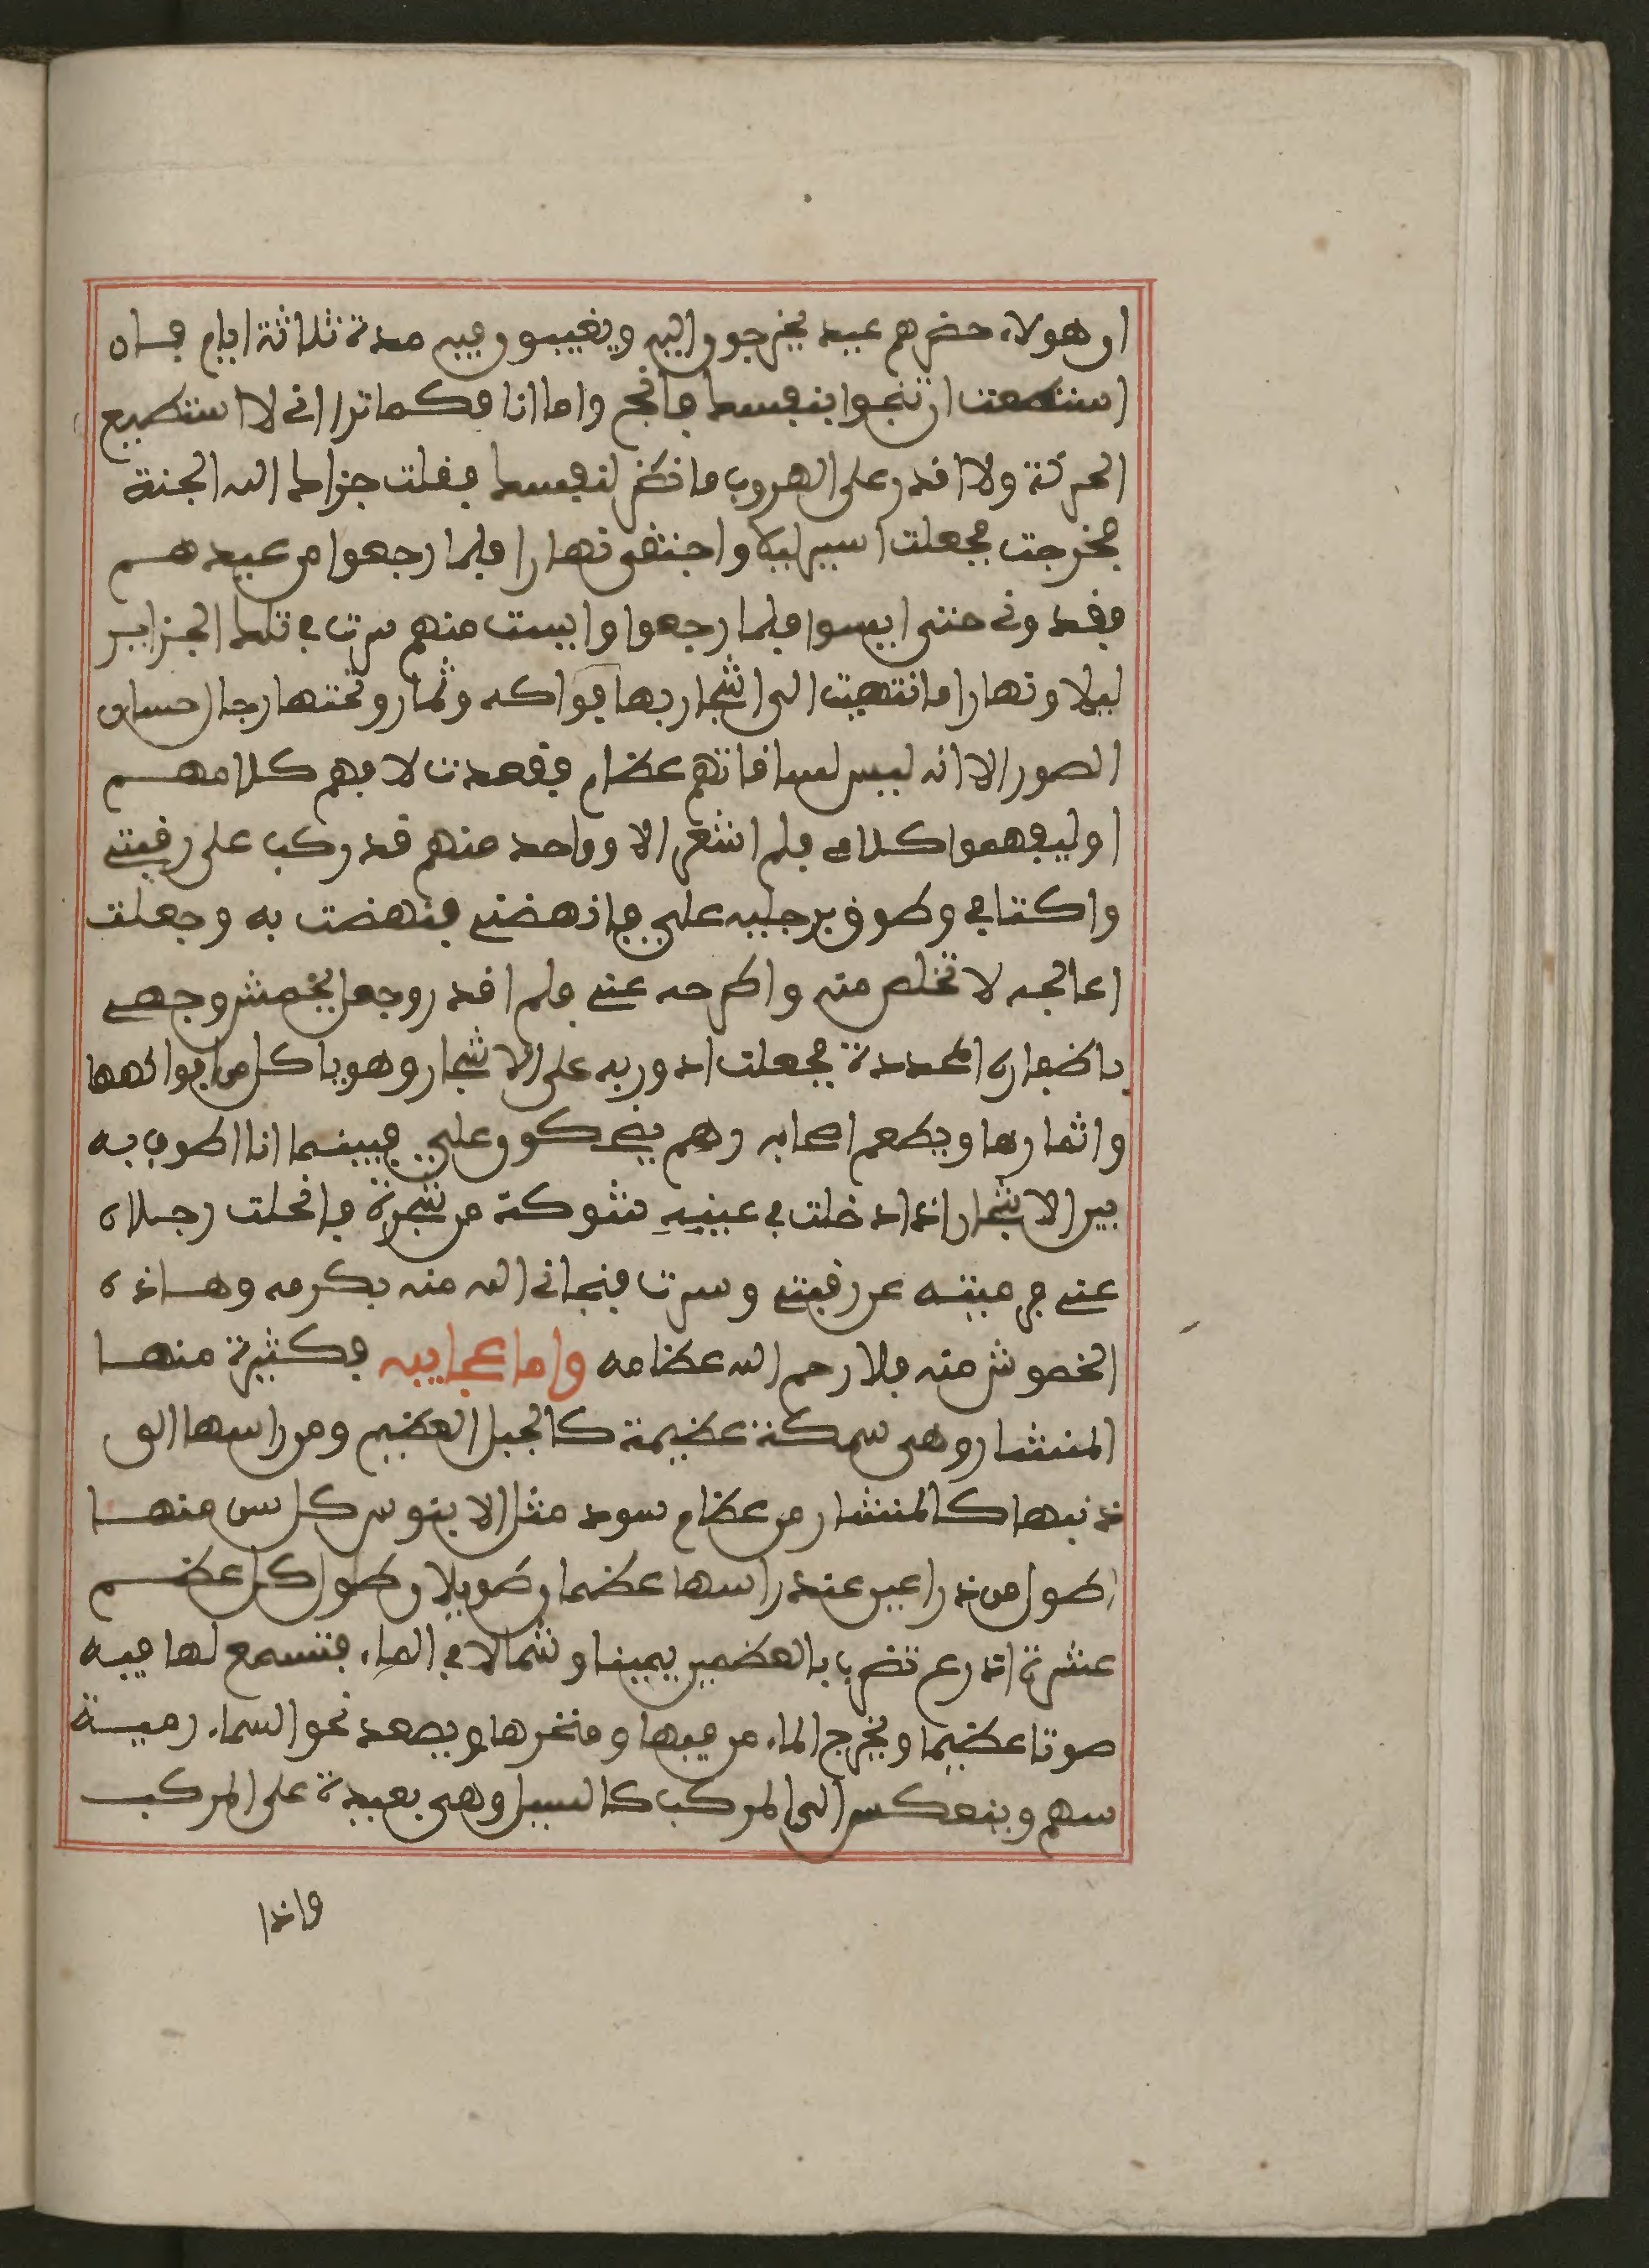 ان هولاء حضرهم عيد يخرجون اليه ويغيبون فيه مدة ثلاثة ايام فان
استطعت ان تنجوا بنفسك فانج واما انا فكما تراني لا استطيع
الحركة ولا اقدر على الهروب فانظر لنفسك فقلت جزاك الله الجنة
فخرجت فجعلت اسير ليلا واختفى نهارا فلما رجعوا من عيدهم
فقدوني حتى ايسوا فلما رجعوا وايست منهم سرت في تلك الجزاير
ليلا ونهارا فانتهيت الى اشجار بها فواكه وثمار وتحتها رجال حسان
الصور الا انه ليس لساقاتهم عظام فقعدت لا افهم كلامهم
او ليفهموا كلامى فلم اشعر الا وواحد منهم قد ركب على رقبتى
واكتافي وطوق برجليه علي فانهضنى فنهضت به وجعلت
اعالجه لاتخلص منه واطرحه عنى فلم اقدر وجعل يخمش وجهى
باظفاره المحددة فجعلت ادور به على الاشجار وهو ياكل من فواكهها
واثمارها ويطعم اصحابه وهم يضحكون علي فبينما انا اطوف به
بين الاشجار اذ ادخلت في عينيه شوكة من شجرة فانحلت رجلاه
عنى فرميته عن رقبتى وسرت فنجاني الله منه بكرمه وهاذه
الخموش منه فلا رحم الله عظامه واما عجايبه فكثيرة منها
المنشار وهى سمكة عظيمة كالجبل العظيم ومن راسها الى
ذنبها كالمنشار من عظام سود مثل الابنوس كل سن منها
اطول من ذراعين عند راسها عظمان طويلان طول كل عظم
عشرة اذرع تضرب بالعظمين يمينا وشمالا في الماء فتسمع لها فيه
صوتا عظيما ويخرج الماء من فيها ومنخرها ويصعد نحو السماء رمية
سهم وينعكس الى المركب كالسيل وهى بعيدة على المركب
واذا